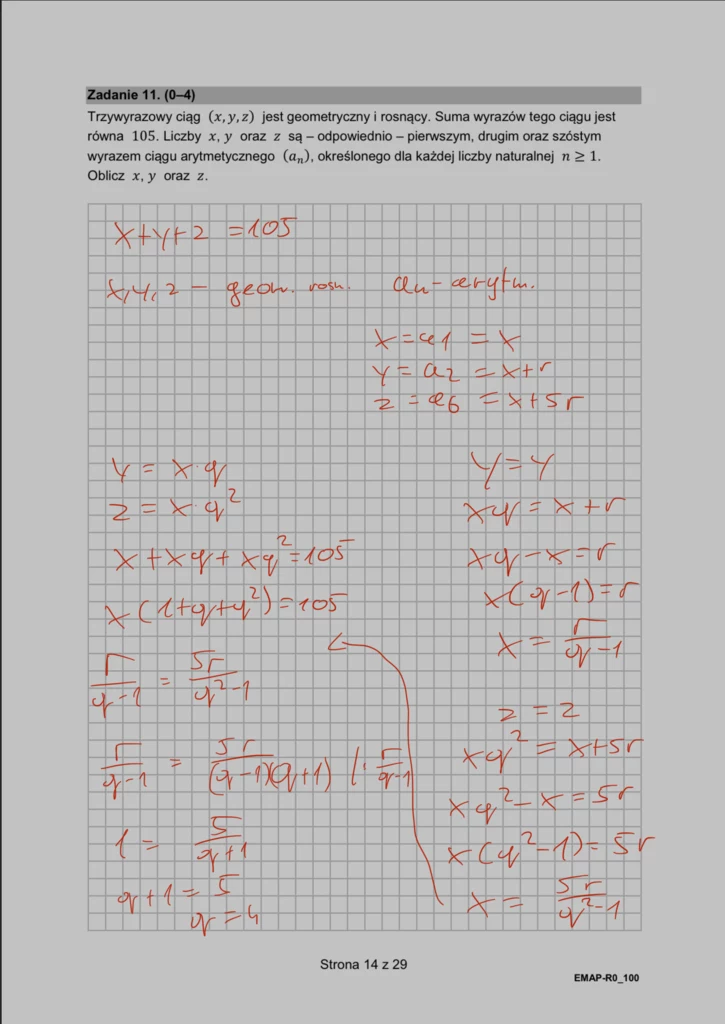 Zadanie 11. (0–4)
Trzywyrazowy ciąg (x, y, z) jest geometryczny i rosnący. Suma wyrazów tego ciągu jest
równa 105. Liczby x, y oraz z są – odpowiednio – pierwszym, drugim oraz szóstym
wyrazem ciągu arytmetycznego (aₙ), określonego dla każdej liczby naturalnej n ≥ 1.
Oblicz x, y oraz z.
x+y+z = 105
x, y, z – geom. rosn.
an – arytm.
x = a1 = x
y = a2 = x+r
z = a6 = x+5r
y = x·q
z = x·q²
x+xq+xq² = 105
x(1+q+q²) = 105
r/(q-1) = 5r/(q²-1)
r/(q-1) = 5r/((q-1)(q+1)) |: r/(q-1)
1 = 5/(q+1)
q+1 = 5
q = 4
y = y
xq = x+r
xq-x = r
x(q-1) = r
x = r/(q-1)
z = z
xq² = x+5r
xq²-x = 5r
x(q²-1) = 5r
x = 5r/(q²-1)
Strona 14 z 29
EMAP-R0_100